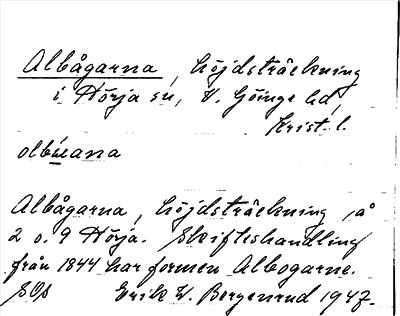 Albågarna, höjdsträckning
i Hörja sn, V. Göinge hd,
Krist. l.
Albågarna, höjdsträckning, å
2 o. 9 Hörja. Skifteshandling
från 1844 har formen Albogarne.
Erik W. Bergenrud 1947.